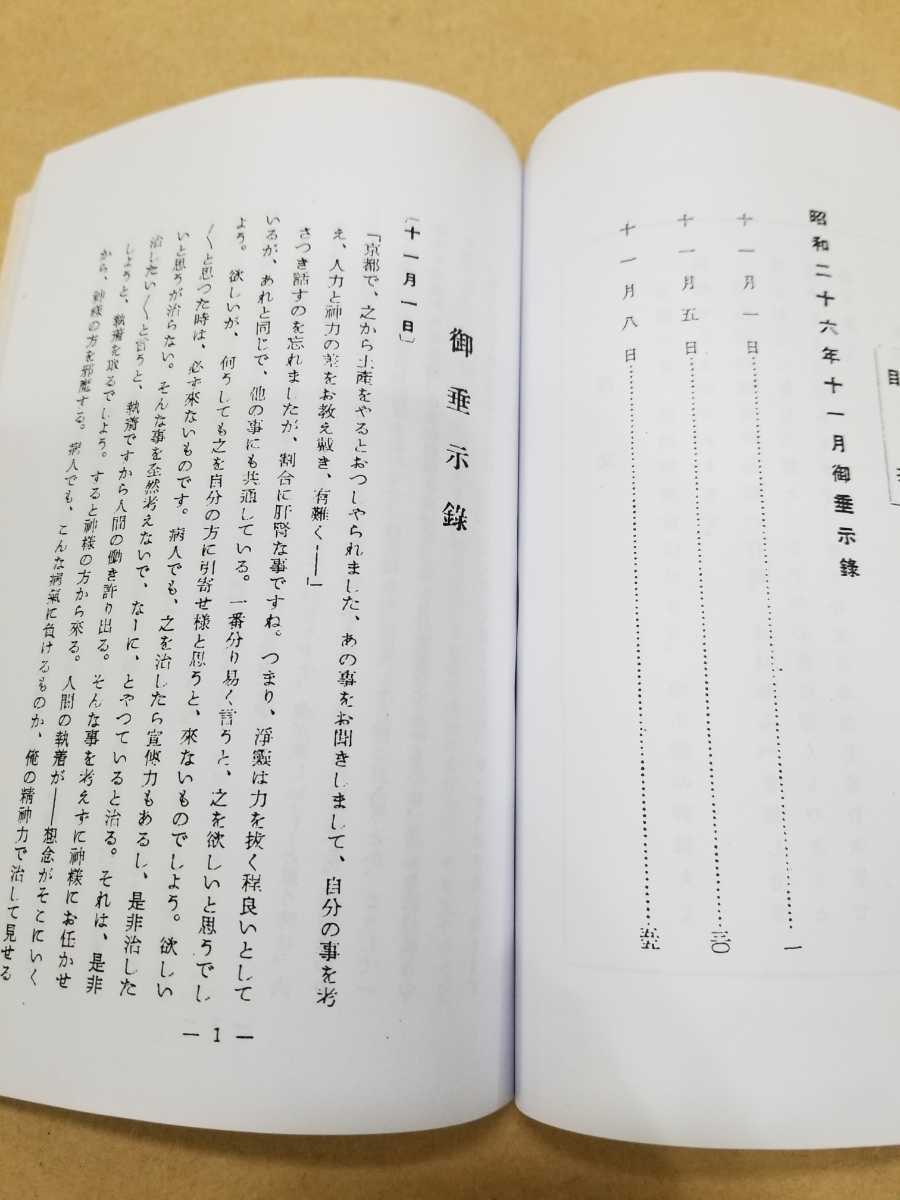 目
昭和二十六年十一月御垂示錄
十一月一日…………一
十一月五日…………三〇
十一月八日…………五九
御垂示錄
〔十一月一日〕
「京都で、之から土産をやるとおつしやられました、あの事をお聞きしまして、自分の事を考
え、人力と神力の差をお教え戴き、有難く――」
さつき話すのを忘れましたが、割合に肝腎な事ですね。つまり、淨靈は力を抜く程良いとして
いるが、あれと同じで、他の事にも共通している。一番分り易く言うと、之を欲しいと思うでし
よう。欲しいが、何うしても之を自分の方に引寄せ樣と思うと、來ないものでしよう。欲しい
〱と思つた時は、必ず來ないものです。病人でも、之を治したら宣傳力もあるし、是非治した
いと思うが治らない。そんな事を全然考えないで、なーに、とやつていると治る。それは、是非
治したい〱と言うと、執着ですから人間の働き許り出る。そんな事を考えずに神樣にお任かせ
しようと、執着を取るでしよう。すると神樣の方から來る。人間の執着が――想念がそこにいく
から、神樣の方を邪魔する。病人でも、こんな病氣に負けるものか、俺の精神力で治して見せる
― 1 ―